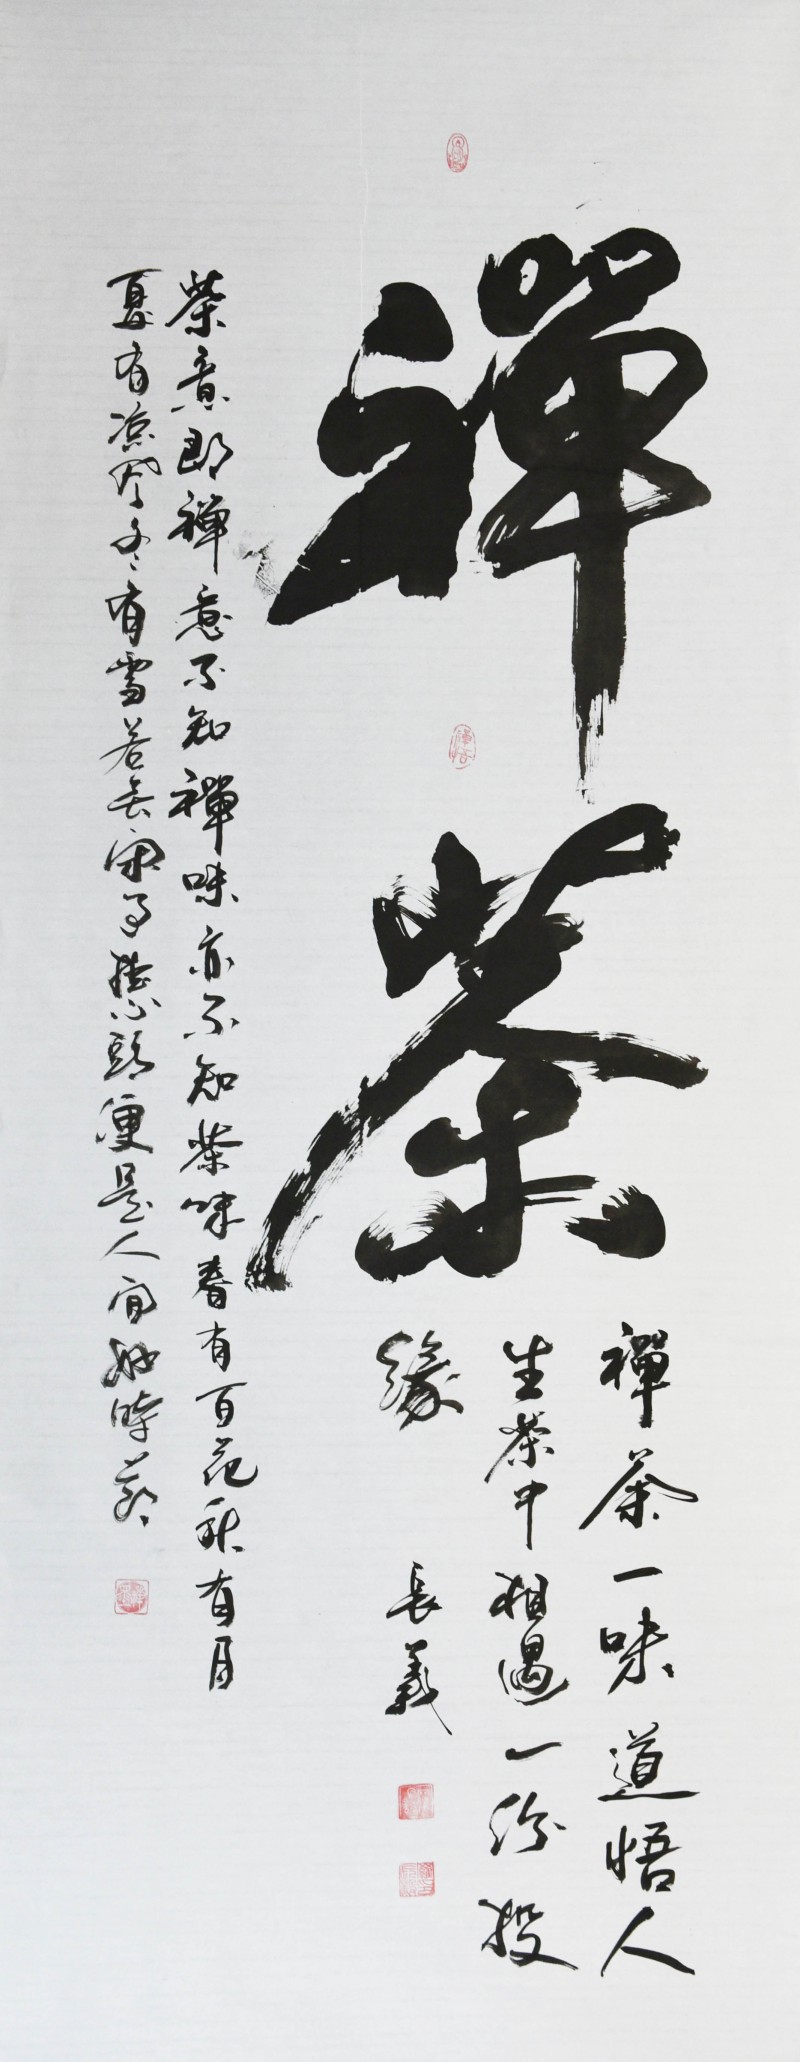 禪茶
禪茶一味道悟人
生茶中相遇一份投
緣
長義
茶意即禪意不知禪味亦不知茶味春有百花秋有月
夏有涼風冬有雪若無閑事挂心頭便是人間好時節